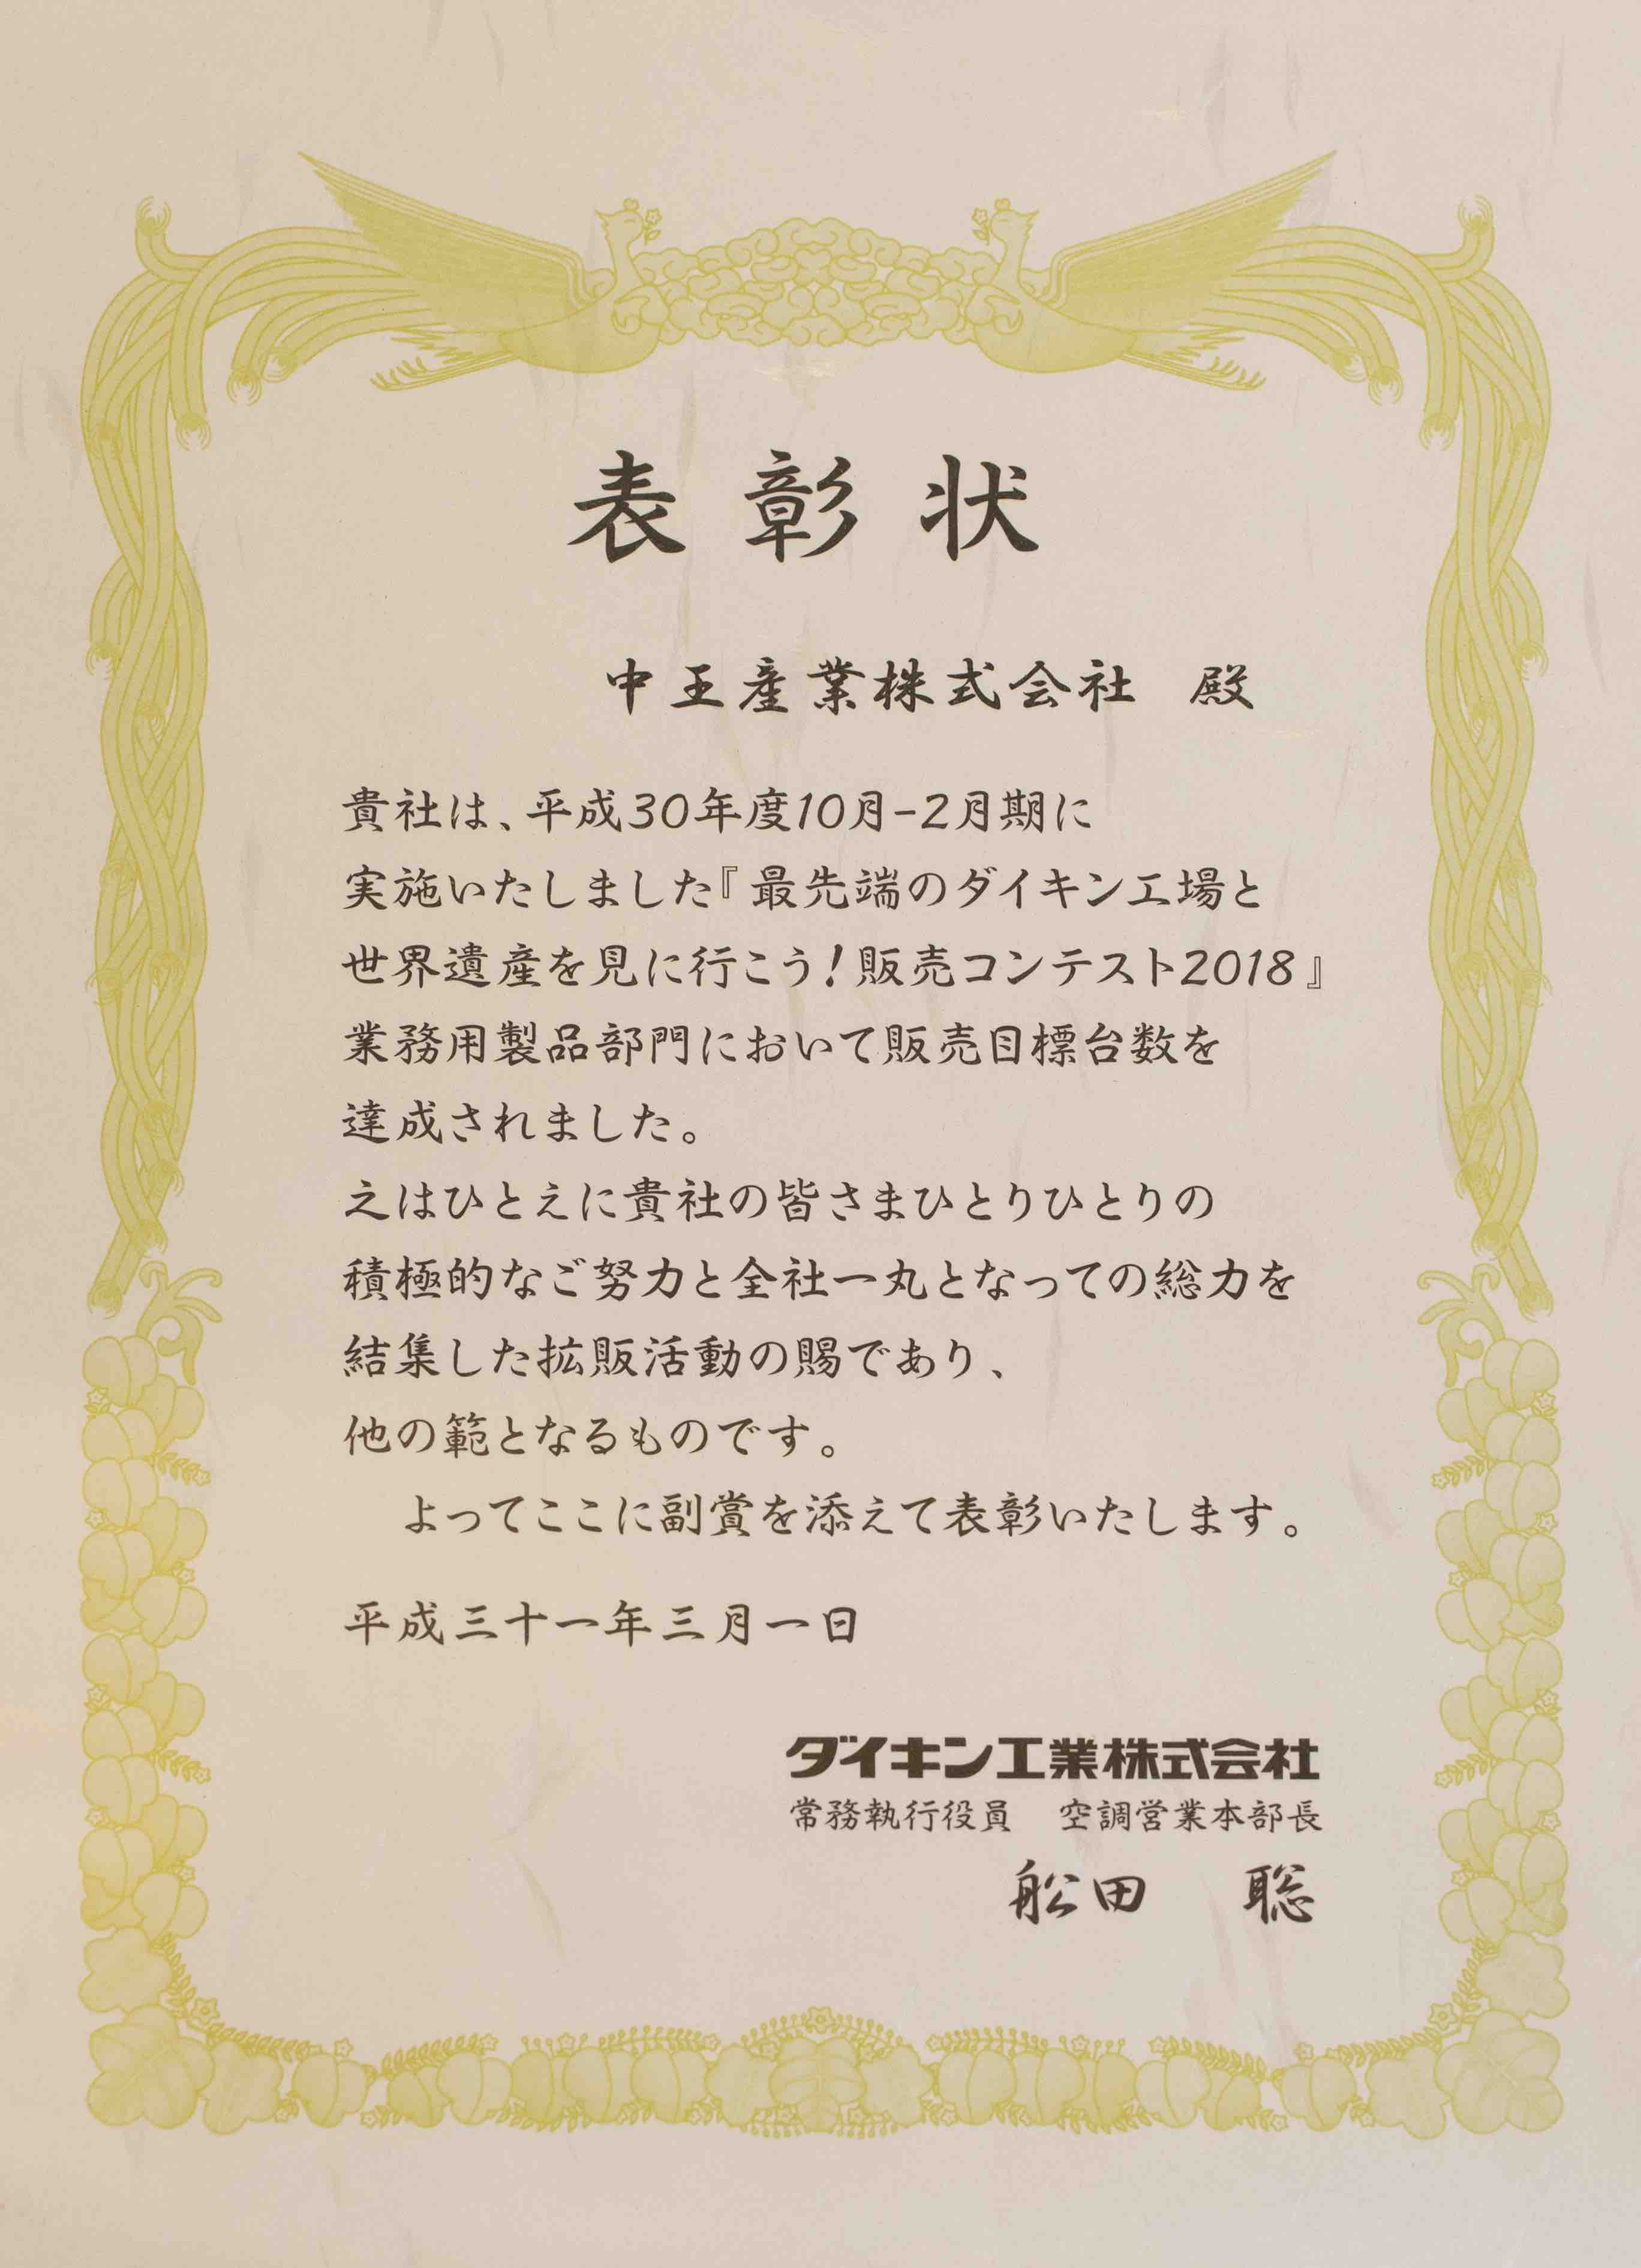 表彰状
中王産業株式会社 殿
貴社は、平成30年度10月-2月期に
実施いたしました『最先端のダイキン工場と
世界遺産を見に行こう!販売コンテスト2018』
業務用製品部門において販売目標台数を
達成されました。
之はひとえに貴社の皆さまひとりひとりの
積極的なご努力と全社一丸となっての総力を
結集した拡販活動の賜であり、
他の範となるものです。
よってここに副賞を添えて表彰いたします。
平成三十一年三月一日
ダイキン工業株式会社
常務執行役員 空調営業本部長
舩田 聡